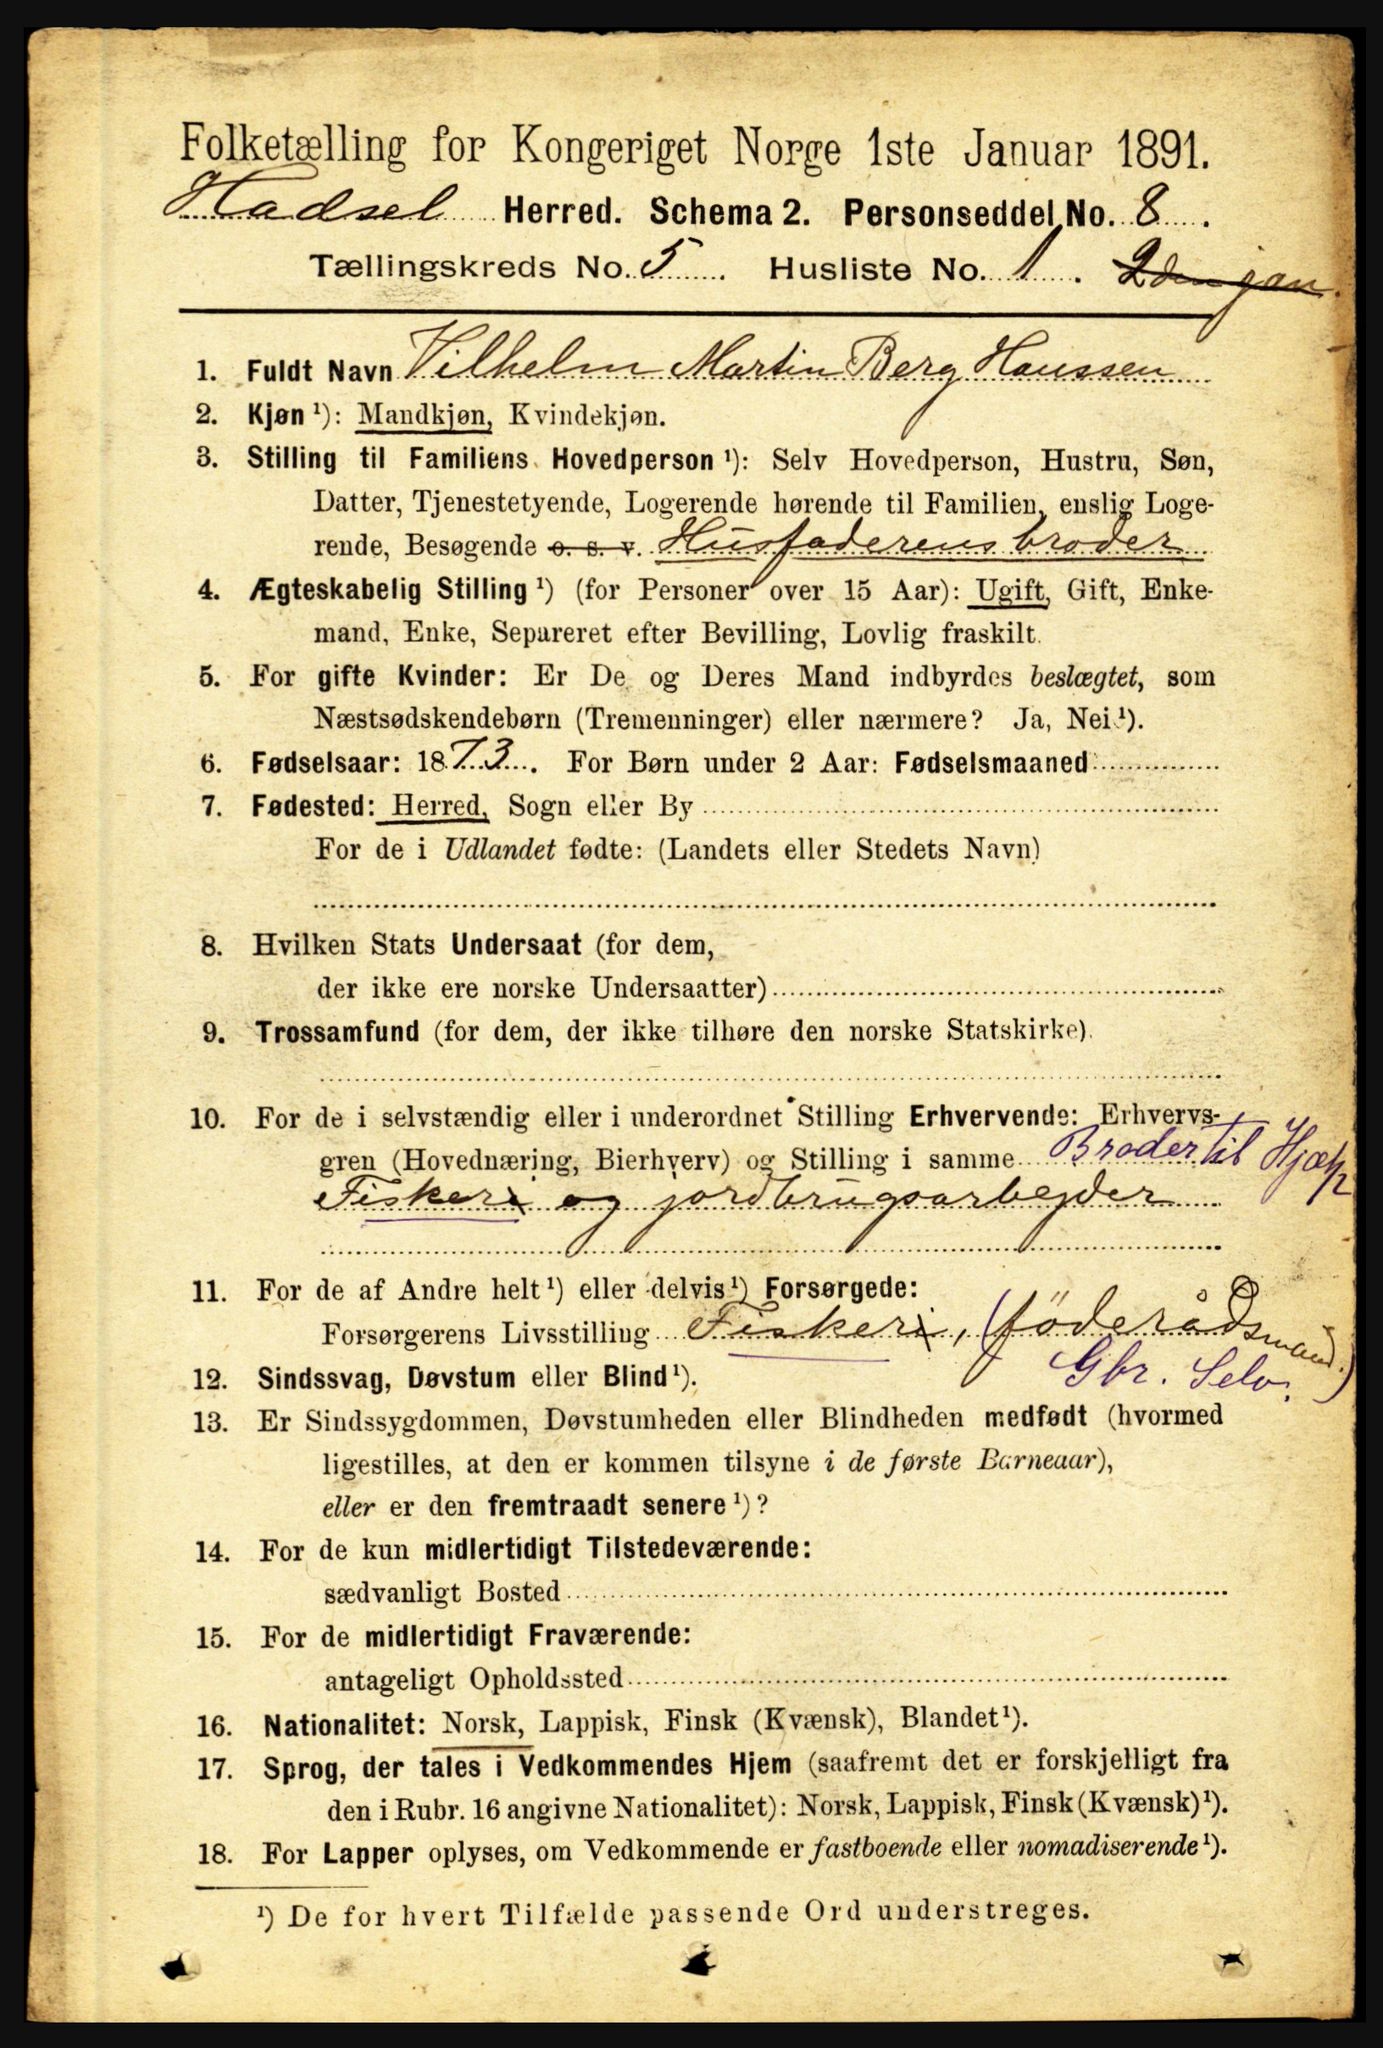 Folketælling for Kongeriget Norge 1ste Januar 1891.
Hadsel Herred. Schema 2. Personseddel No. 8.
Tællingskreds No. 5. Husliste No. 1. 2den jan.
1. Fuldt Navn Vilhelm Martin Berg Hanssen
2. Kjøn ¹): Mandkjøn, Kvindekjøn.
3. Stilling til Familiens Hovedperson ¹): Selv Hovedperson, Hustru, Søn,
Datter, Tjenestetyende, Logerende hørende til Familien, enslig Loge-
rende, Besøgende o. s. v. Husfaderens broder
4. Ægteskabelig Stilling ¹) (for Personer over 15 Aar): Ugift, Gift, Enke-
mand, Enke, Separeret efter Bevilling, Lovlig fraskilt.
5. For gifte Kvinder: Er De og Deres Mand indbyrdes beslægtet, som
Næstsødskendebørn (Tremenninger) eller nærmere? Ja, Nei ¹).
6. Fødselsaar: 1873. For Børn under 2 Aar: Fødselsmaaned
7. Fødested: Herred, Sogn eller By
For de i Udlandet fødte: (Landets eller Stedets Navn)
8. Hvilken Stats Undersaat (for dem,
der ikke ere norske Undersaatter)
9. Trossamfund (for dem, der ikke tilhøre den norske Statskirke).
10. For de i selvstændig eller i underordnet Stilling Erhvervende: Erhvervs-
gren (Hovednæring, Bierhverv) og Stilling i samme Broder til Hjælp
Fiskeri og jordbrugsarbejder
11. For de af Andre helt ¹) eller delvis ¹) Forsørgede:
Forsørgerens Livsstilling Fiskeri, (föderådsmand.)
Gbr. Selv.
12. Sindssvag, Døvstum eller Blind ¹).
13. Er Sindssygdommen, Døvstumheden eller Blindheden medfødt (hvormed
ligestilles, at den er kommen tilsyne i de første Barneaar),
eller er den fremtraadt senere ¹)?
14. For de kun midlertidigt Tilstedeværende:
sædvanligt Bosted
15. For de midlertidigt Fraværende:
antageligt Opholdssted
16. Nationalitet: Norsk, Lappisk, Finsk (Kvænsk), Blandet ¹).
17. Sprog, der tales i Vedkommendes Hjem (saafremt det er forskjelligt fra
den i Rubr. 16 angivne Nationalitet): Norsk, Lappisk, Finsk (Kvænsk) ¹).
18. For Lapper oplyses, om Vedkommende er fastboende eller nomadiserende ¹).
¹) De for hvert Tilfælde passende Ord understreges.